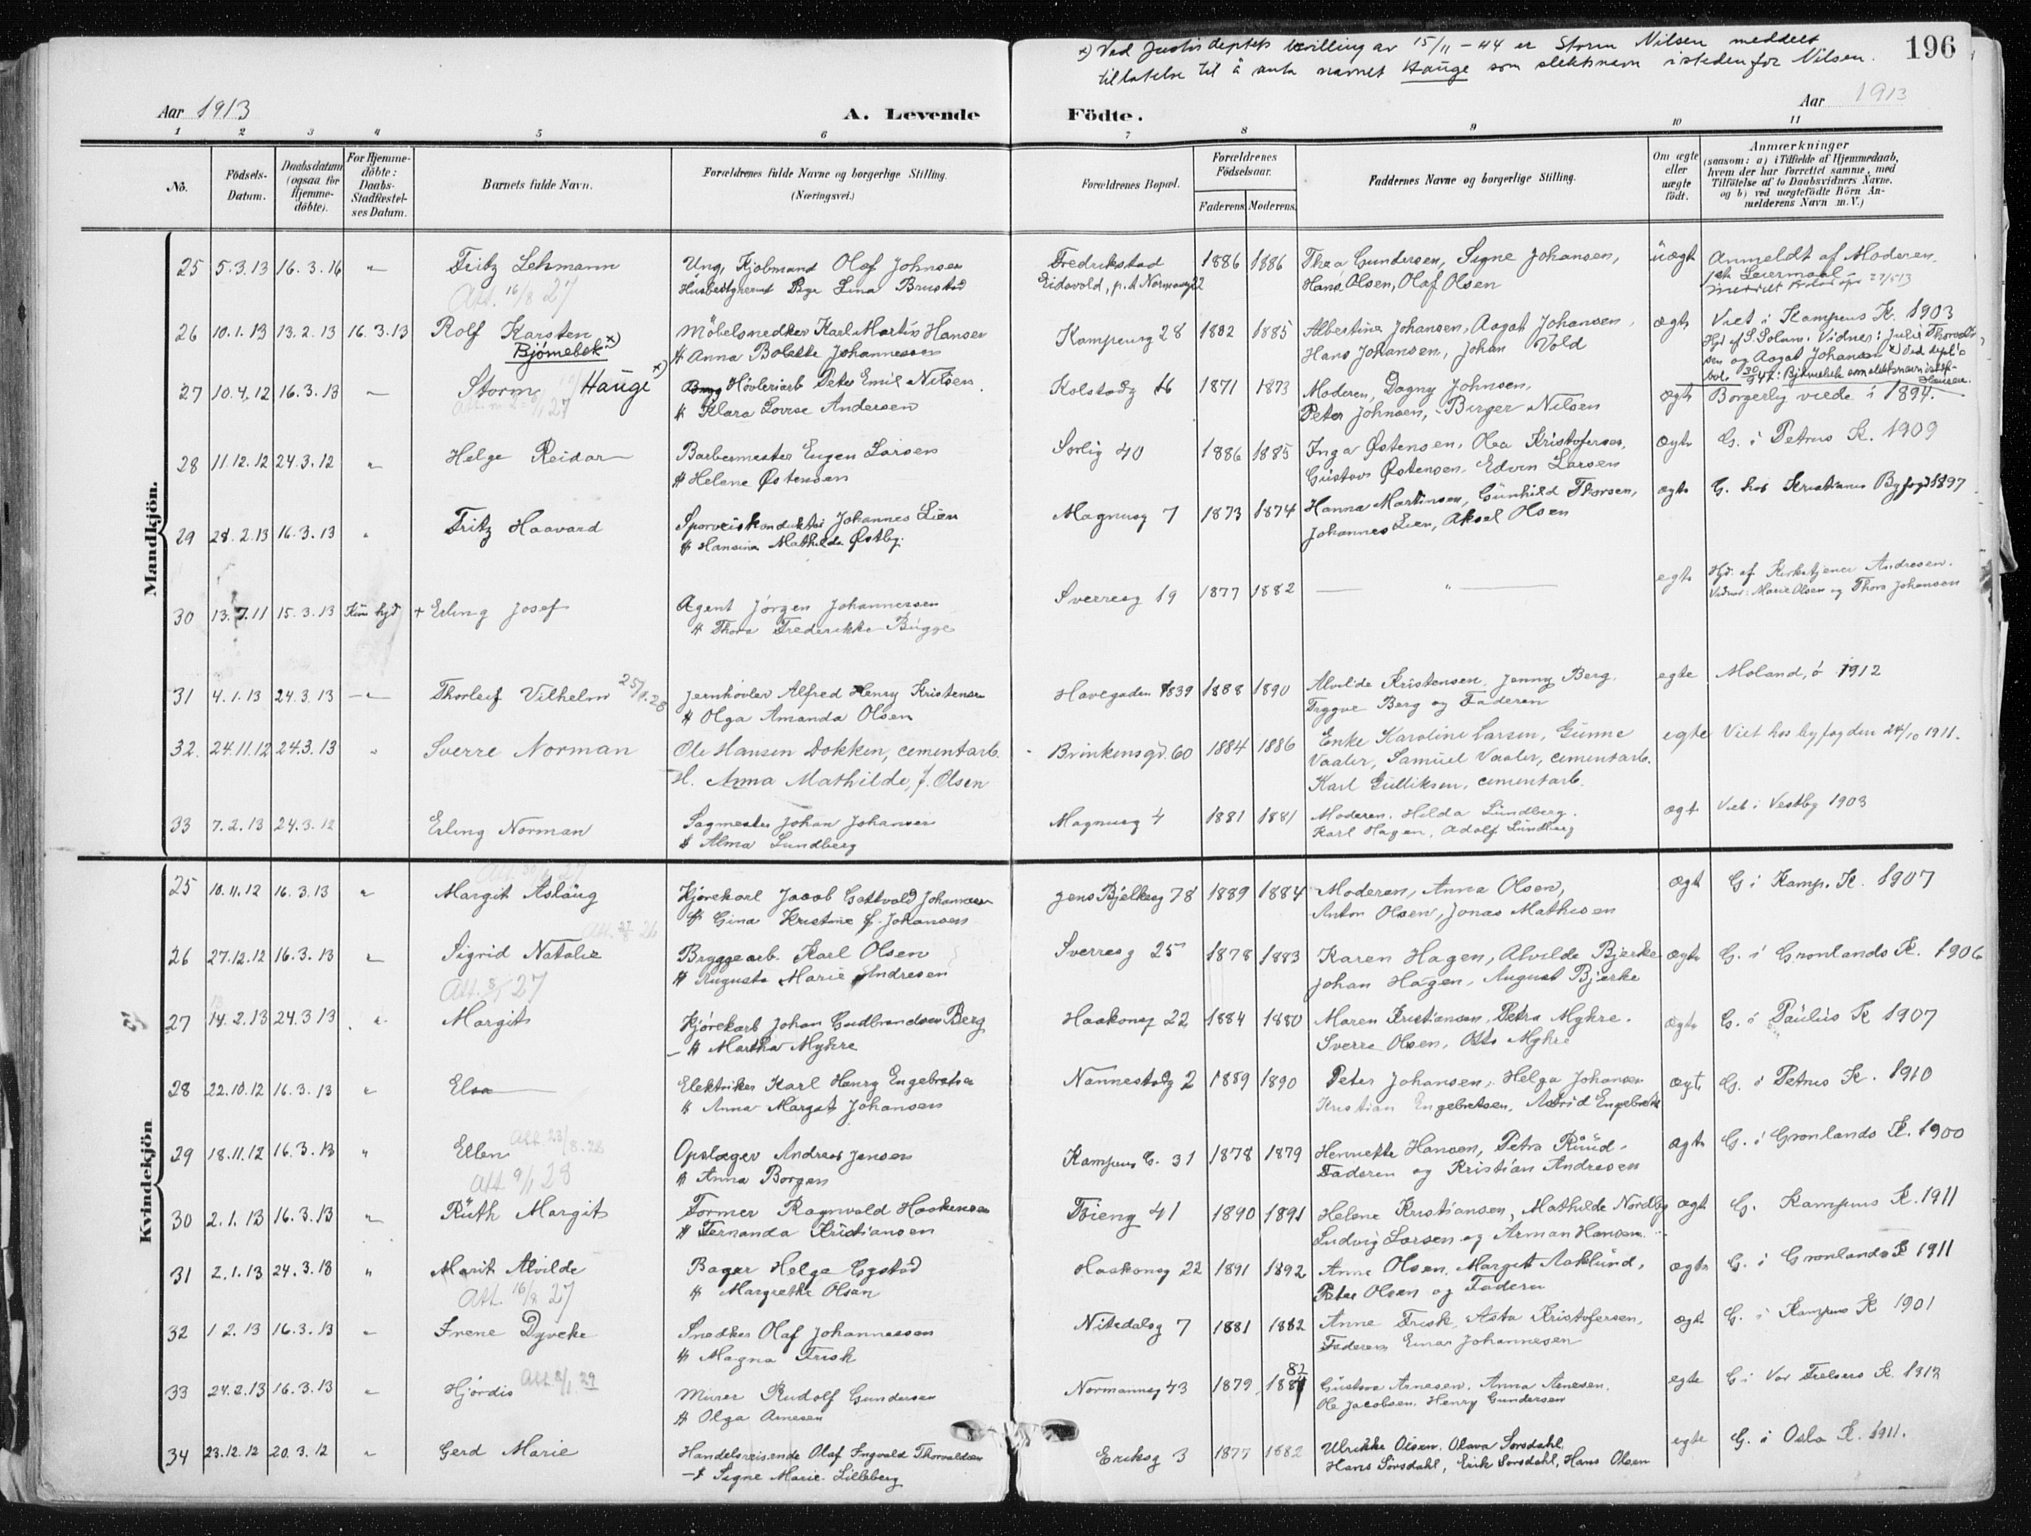 x) Ved Justisdeptets bevilling av 15/11 - 44 er Storm Nilsen meddelt
tillatelse til å anta navnet Hauge som slektsnavn istedenfor Nilsen.
196
Aar 1913
A. Levende Födte.
Aar 1913
1 2 3 4 5 6 7 8 9 10 11
No.
Födsels-Datum.
Daabsdatum (ogsaa for Hjemme-döbte).
For Hjemme-döbte: Daabs-Stadfæstel-ses Datum.
Barnets fulde Navn.
Forældrenes fulde Navne og borgerlige Stilling. (Næringsvei.)
Forældrenes Bopæl.
Forældrenes Födselsaar.
Faderens Moderens.
Faddernes Navne og borgerlige Stilling.
Om ægte eller uægte födt.
Anmærkninger (saasom: a) i Tilfælde af Hjemmedaab, hvem der har forrettet samme, med Tilföielse af to Daabsvidners Navne, og b) ved uegtefödte Börn Anmelderens Navn m. V.)
Mandkjön.
25 5.3.13 16.3.16 " Fritz Lehmann Ung. Kjøbmand Olaf Johnsen Fredrikstad 1886 1886 Thea Gundersen, Signe Johansen, uægt Anmeldt af Moderen.
Att. 16/8 27 Lina Brustad Eidsvold, p.t. Normannsg 22 Hans Olsen, Olaf Olsen 1ste Leiermaal
26 10.1.13 13.2.13 16.3.13 Rolf Karsten Möbelsnedker Karl Martin Hansen Kampensg 28 1882 1885 Albestine Johansen, Aagot Johansen, ægte Viet i Kampens K. 1903
Bjørnebek x) H Anna Bolette Johannessen Hans Johansen, Johan Vold Hjd af S. Solum. Vidner: Julie Thorvald-
sen og Aagot Johansen x) Ved dept's
bev. 30/9 47: Bjørnebek som slektsnavn istedf. Hansen.
27 10.4.12 16.3.13 " Storm Hauge x) Høvleriarb Peter Emil Nilsen. Kolstadg 16 1871 1873 Moderen, Dagny Johnsen, ægte Borgerlig viede i 1894.
H Klara Lovise Andersen Peter Johnsen, Birger Nilsen
28 11.12.12 24.3.12 " Helge Reidar Barbermester Eugen Larsen Sørlig 40 1886 1885 Inga Østensen, Olea Kristofersen, ægte G. i Petrus K. 1909
H Helene Østensen Gustav Østensen, Edvin Larsen
29 28.2.13 16.3.13 " Fritz Haavard Sporveiskonduktør Johannes Lien Magnusg 7 1873 1874 Hanna Martinsen, Gunhild Thorsen, ægte G. hos Kristiania Byfogd 1897
H Hansine Mathilde Østby. Johannes Lien, Aksel Olsen
30 13.7.11 15.3.13 Kun hjd + Erling Josef Agent Jørgen Johannessen Sverresg 19 1877 1882 — " — egte Hjd. af Kirketjener Andresen.
H Thora Frederikke Bugge Vidner: Marie Olsen og Thora Johansen
31 4.1.13 24.3.13 " Thorleif Vilhelm 25/1.28 Jernhøvler Alfred Henry Kristensen Havegaden 39 1888 1890 Alvilde Kristensen, Jenny Berg. egte Moland, ö 1912
H Olga Amanda Olsen Tryggve Berg og Faderen
32. 24.11.12 24.3.13 " Sverre Norman Ole Hansen Dokken, cementarb. Brinkensgd. 60 1884 1886 Enke Karoline Larsen, Gunne egte Viet hos byfogden 24/10 1911.
H. Anna Mathilde, f. Olsen Vaaler, Samuel Vaaler, cementarb.
Karl Gulliksen, cementarb.
33 7.2.13 24.3.12 Erling Norman Sagmester Johan Johansen Magnusg 4 1881 1881 Moderen, Hilda Lundberg. ægt Viet i Vestby 1903
H Alma Lundberg Karl Hagen, Adolf Lundberg
Kvindekjön
25 10.11.12 16.3.13 " Margit Aslaug Kjørekarl Jacob Gottvald Johannessen Jens Bjelkesg 78 1889 1884 Moderen, Anna Olsen, ægt G i Kamp. K. 1907
H Gina Kristine f. Johansen Anton Olsen, Jonas Mathisen
26 27.12.12 16.3.13 " Sigrid Natalie Bryggearb. Karl Olsen Sverresg 25 1878 1883 Karen Hagen, Alvilde Bjerke ægte G. i Grønlands K. 1906
Att. 27 H Augusta Marie Andresen Johan Hagen, August Bjerke
27 14.2.13 24.3.13 " Margit Kjørekarl Johan Gudbrandsen Berg Haakonsg 22 1884 1880 Maren Kristiansen, Petra Myhre. ægte G. i Paulus K 1907
H Martha Myhre Sverre Olsen, Otto Myhre
28 22.10.12 16.3.13 " Elsa Elektriker Karl Henry Engebretsen Nannestadg 2 1889 1890 Peter Johansen, Helga Johansen ægt G. i Petrus K. 1910
H Anna Margit Johansen Kristian Engebretsen, Astrid Engebretsen
29 18.11.12 16.3.13 " Ellen Att. 23/8.22 Opslager Andreas Jensen Kampens G. 31 1878 1879 Henriette Hansen, Petra Ruud. ægte G. i Grønlands K. 1900
Att 9/1 28 H Anna Borgen Faderen og Kristian Andresen
30 2.1.13 16.3.13 " Ruth Margit Former Ragnvald Haakensen 41 1890 1891 Helene Kristiansen, Mathilde Nordby ægt G. Kampens K. 1911
H Fernanda Kristiansen Ludvig Larsen og Arman Hansen
31 2.1.13 24.3.13 " Marit Alvilde Bager Helge Bystad Haakonsg 22 1891 1892 Anna Olsen, Margit Asklund, ægte G. i Grønlands K 1911
Att. 16/8 27 H Margrethe Olsen Peter Olsen og Faderen
32 1 2.13 16.3.13 " Irene Dyveke Snedker Olaf Johannessen Nitedalsg 7 1881 1882 Anne Frisk, Asta Kristofersen, ægt G. i Kampens K 1901
H Magna Frisk Faderen, Einar Johannesen
33 24.2.13 16.3.13 " Hjørdis Att. 2/1 29 Murer Rudolf Gundersen Normannsg 43 1879 1881 82 Gustava Arnesen, Anna Arnesen. egte G i Vor Frelsers K. 1912
H Olga Arnesen Ole Jacobsen, Henry Gundersen
34 23.12.12 20.3.12 " Gerd Marie Handelsreisende Olaf Ingvald Thorvaldsen Eriksg 3 1877 1882 Ulrikke Olsen, Olava Sørsdahl, egte G. i Oslo K. 1911.
H Signe Marie Lilleberg Hans Sørsdahl, Erik Sørsdahl, Hans Olsen